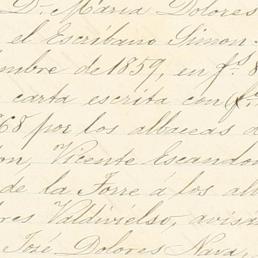 D.ª Maria Dolores
el Escribano Simon
mbre de 1859, en f.s 8
carta escrita con (f.s
68 por los albaceas d
on, Vicente Escandon
de la Torre á los al
res Valdivielso, avisa
José Dolores Nava,